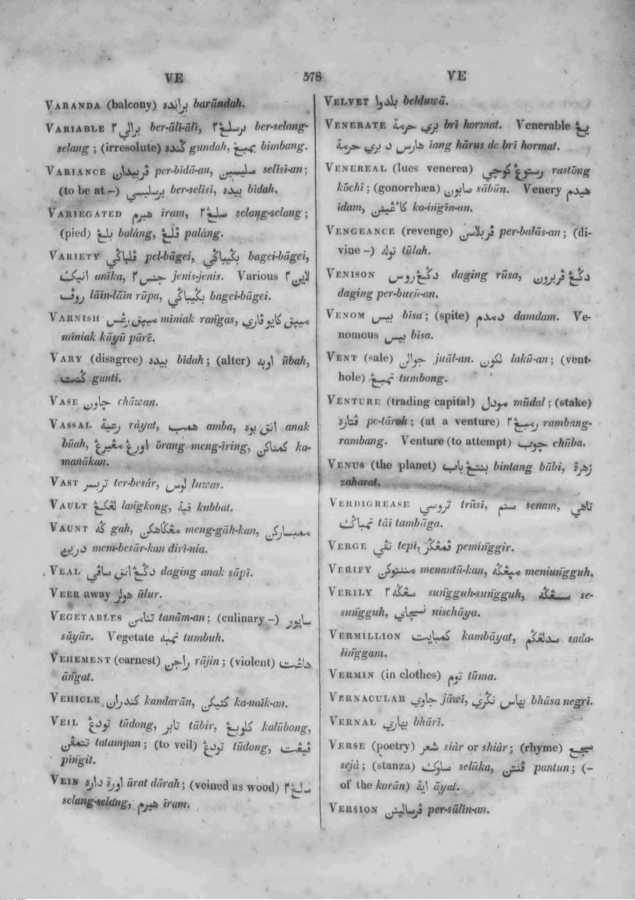 VE 578 VE
VARANDA (balcony) برانده barāndah.
VARIABLE برالي٢ ber-āli-āli, برسلڠ٢ ber-selang-
selang; (irresolute) گنده gundah, بمبڠ bimbang.
VARIANCE ڤربيدان per-bidā-an, سليسين selisi-an;
(to be at —) برسليسي ber-selisi, بيده bidah.
VARIEGATED هيرم iram, سلڠ٢ selang-selang;
(pied) بلڠ balāng, ڤلڠ palāng.
VARIETY ڤلباݢي pel-bāgei, بݢيباݢي bagei-bāgei,
انيک anika, جنس٢ jenis-jenis. Various لاين٢
روف lāin-lāin rūpa, بݢيباݢي bagei-bāgei.
VARNISH مپق رڠس miniak rangas, مپق كايو ڤاري
miniak kāyū pārē.
VARY (disagree) بيده bidah; (alter) اوبه ūbah,
ݢنت ganti.
VASE چاون chāwan.
VASSAL رعية rāyat, همب amba, انق بوه anak
būah, اورڠ مڠيرڠ ōrang meng-īring, كمناكن ka-
manākan.
VAST تربسر ter-besār, لوس luwas.
VAULT لڠكڠ langkong, قبة kubbat.
VAUNT ݢه gah, مڠݢهكن meng-gāh-kan, ممبساركن
دريڽ mem-besār-kan diri-nia.
VEAL دݢڠ انق ساڤي daging anak sāpi.
VEER away هولر ūlur.
VEGETABLES تنامن tanām-an; (culinary —) سايور
sāyūr. Vegetate تمبه tumbuh.
VEHEMENT (earnest) راجن rājin; (violent) داڠت
āngat.
VEHICLE كندران kandarān, كنيكن ka-naik-an.
VEIL تودڠ tūdong, تابر tābir, كلوبڠ kalūbong,
تتمڤن tatampan; (to veil) تودڠ tūdong, ڤيڠت
pingit.
VEIN اورة داره ūrat dārah; (veined as wood) سلڠ٢
selang-selang, هيرم iram.
VELVET بلدوا belduwā.
VENERATE بري حرمة brī hormat. Venerable يڠ
هارس د بري حرمة iang hārus de brī hormat.
VENEREAL (lues venerea) رستوڠ كوچي rastōng
kōchi; (gonorrhæa) صابون sābūn. Venery هيدم
idam, كايڠينن ka-ingin-an.
VENGEANCE (revenge) ڤربلاسن per-balās-an; (di-
vine —) توله tūlah.
VENISON دݢڠ روس daging rūsa, دݢڠ ڤربورون
daging per-burū-an.
VENOM بيس bīsa; (spite) دمدم damdam. Ve-
nomous بيس bīsa.
VENT (sale) جوالن juāl-an. لكون lakū-an; (vent-
hole) تمبڠ tumbong.
VENTURE (trading capital) مودل mūdal; (stake)
ڤتاره pe-tāroh; (at a venture) رمبڠ٢ rambang-
rambang. Venture (to attempt) چوب chūba.
VENUS (the planet) بنتڠ باب bintang bābi, زهرة
zaharat.
VERDIGREASE تروسي trūsi, سنم senam, تاهي
تمباݢ tāi tambāga.
VERGE تڤي tepi, ڤمڠݢر peminggir.
VERIFY مننتوكن menantū-kan, مڽڠݢه meniungguh.
VERILY سڠݢه٢ sungguh-sungguh, سسڠݢه se-
sungguh, نسچاي nischāya.
VERMILLION كمبايت kambāyat, سدلڠݢم sada-
linggam.
VERMIN (in clothes) توم tūma.
VERNACULAR جاوي jāwī, بهاس نݢري bhāsa negrī.
VERNAL بهاري bhārī.
VERSE (poetry) شعر siār or shiār; (rhyme) سجع
sejā; (stanza) سلوك selūka, ڤنتن pantun; (—
of the korān) اية āyat.
VERSION ڤرسالينن per-sālin-an.